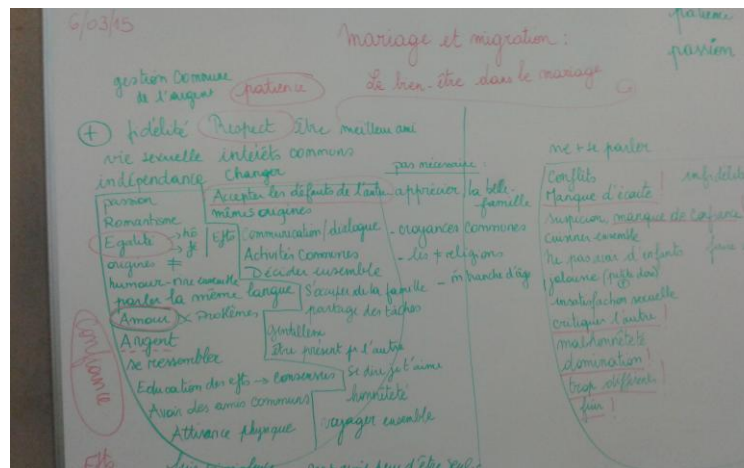 6/03/15
Mariage et migration :
Le bien-être dans le mariage
patience
passion
gestion commune
de l'argent
patience
+ fidélité Respect Être meilleur ami
vie sexuelle intérêts communs
indépendance Changer
passion
Romantisme
Egalité → hô
→ fê
origines ≠
humour - rire ensemble
parler la même langue
Amour × Problèmes
Argent
se ressembler
Education des efts → consensus
Avoir des amis communs
Attirance physique
Confiance
Accepter les défauts de l'autre
mêmes origines
Efts Communication/dialogue
Activités communes
Décider ensemble
S'occuper de la famille
partage des tâches
gentillesse
Être présent pr l'autre
Se dire je t'aime
honnêteté
voyager ensemble
pas nécessaire :
apprécier la belle-
famille
- croyances communes
- les + religions
- m̂ tranche d'âge
ne + se parler
Conflits infidélité
Manque d'écoute !
suspicion, manque de confiance !
cuisiner ensemble
ne pas avoir d'enfants
jalousie
insatisfaction sexuelle
critiquer l'autre !
malhonnêteté
domination !
trop différent !
Efts
peur d'être seul